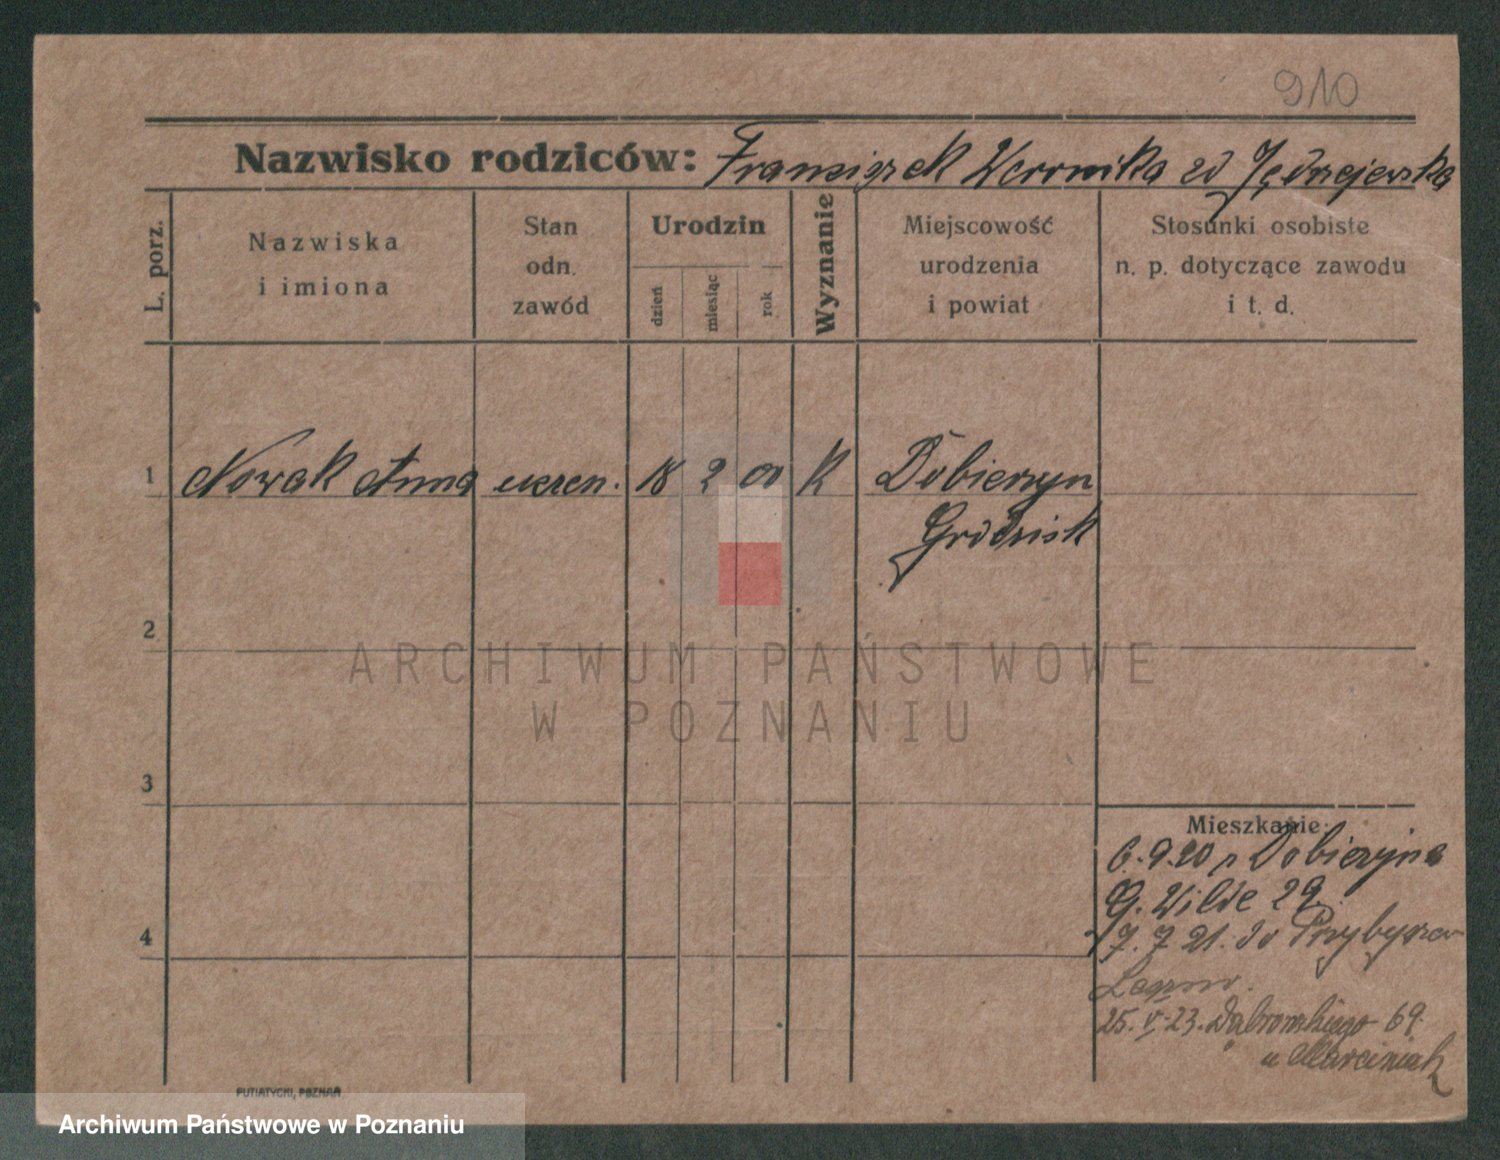 910
Nazwisko rodziców: Franciszek Weronika zd Jędrzejewska
L. porz.
Nazwiska
i imiona
Stan
odn.
zawód
Urodzin
dzień
miesiąc
rok
Wyznanie
Miejscowość
urodzenia
i powiat
Stosunki osobiste
n. p. dotyczące zawodu
i t. d.
1 Nowak Anna uczen. 18 2 00 K Dobieżyn
Grodzisk
2
ARCHIWUM PAŃSTWOWE
W POZNANIU
3
4
Mieszkanie:
6.9.20 z Dobieżyna
G. Wilde 29
7.7 21. do
25. V. 23. Dąbrowskiego 69
u Marciniak
PUTIATYCKI, POZNAŃ
Archiwum Państwowe w Poznaniu